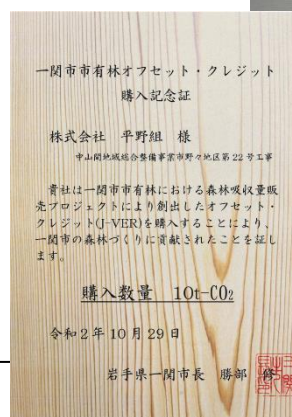 一関市市有林オフセット・クレジット
購入記念証
株式会社 平野組 様
中山間地域総合整備事業市野々地区第22号工事
貴社は一関市市有林における森林吸収量販
売プロジェクトにより創出したオフセット・
クレジット(J-VER)を購入することにより、
一関市の森林づくりに貢献されたことを証し
ます。
購入数量 10t-CO₂
令和2年10月29日
岩手県一関市長 勝部 修